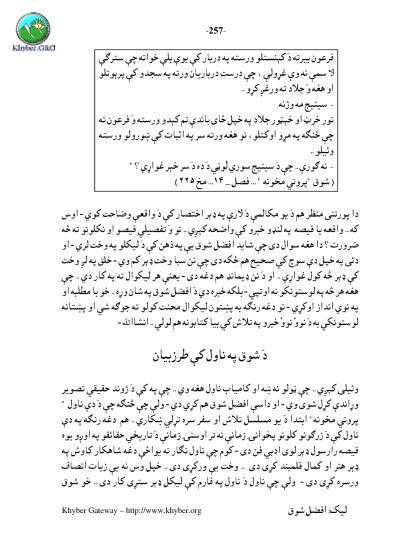 -257-
Khyber.ORG
فرعون بېرته دَ کېنستلو ورسته په دربار کې يوې بلې خواته چې سترګې
لا سمې نه وې غړولې ، چې درست درباريان ورته په سجدو کې پرېوتلو
او هغه وَ جلاد ته ورغږ کړو ..
- سينيج مه وژنه
تور خرټ او خېټور جلاد په خپل ځاى باندې تم کېدو ورسته وَ فرعون ته
چې څنګه په مړو اوکتلو ، نو هغه ورته سر په اثبات کې ښورولو ورسته
وئيلو ..
- نه ګورې.. چې دَ سينيج سورې لوڼې دَ ده دَ سر خبر غواړي ؟ "
( شوق "پرونې مخونه "... فصل_ ١٤... مخ ٢٢٥ )
دا پورتنۍ منظر هم دَ يو مکالمې دَ لارې په ډېر اختصار کې دَ واقعې وضاحت کوي - اوس
که.. واقعه يا قيصه په لنډو خبرو کې واضحه کېږي.. نو دَ تفصيلي قيصو او نکلونو ته څه
ضرورت ؟ دا هغه سوال دى چې شايد افضل شوق يې په ذهن کې دَ ليکلو په وخت لري - او
دئى په خپل دې سوچ کې صحيح هم ځکه دى چې نن سبا وخت ډېر کم وي - خلق په لږ وخت
کې ډېر څه کول غواړي .. او دَ نن ډيمانډ هم دغه دى - يعني هر ليکوال ته په کار دي .. چې
هغه هر څه په لوستونکو نه اوتپي - بلکه خبره دې دَ افضل شوق په شان وړه .. خو با مطلبه او
په نوي انداز اوکړي - نو دغه رنګه به پښتون ليکوال محنت کولو ته جوګه شي او پښتانه
لوستونکي به دَ نوؤ نوؤ خبرو په تلاش کې بيا کتابونه هم لولي .. انشاالله -
دَ شوق په ناول کې طرز بيان
وئيلى کېږي.. چې ټولو نه ښه او کامياب ناول هغه وي .. چې په کې دَ ژوند حقيقي تصوير
وړاندې کړل شوى وي - او داسې افضل شوق هم کړي دي - ولې چې څنګه چې دَ دې ناول "
پرونې مخونه" ابتدا دَ يو مسلسل تلاش او سفر سره تړلې ښکاري .. هم دغه رنګه په دې
ناول کې دَ زرګونو کلونو پخوانۍ زمانې نه تر اوسنۍ زمانې دَ تاريخي حقائقو په اوږو يوه
قيصه رارسول ډېر لوى ادبي فن دى - کوم چې ناول نګار نه يواځې دغه شاهکار کاوش په
ډېر هنر او کمال قلمبند کړى دى .. وخت يې ورکړى دى .. خپل وس نه يې زيات انصاف
ورسره کړى دى - ولې چې ناول دَ ناول په فارم کې ليکل ډېر ستړى کار دى .. خو شوق
ليک: افضل شوق
Khyber Gateway – http://www.khyber.org